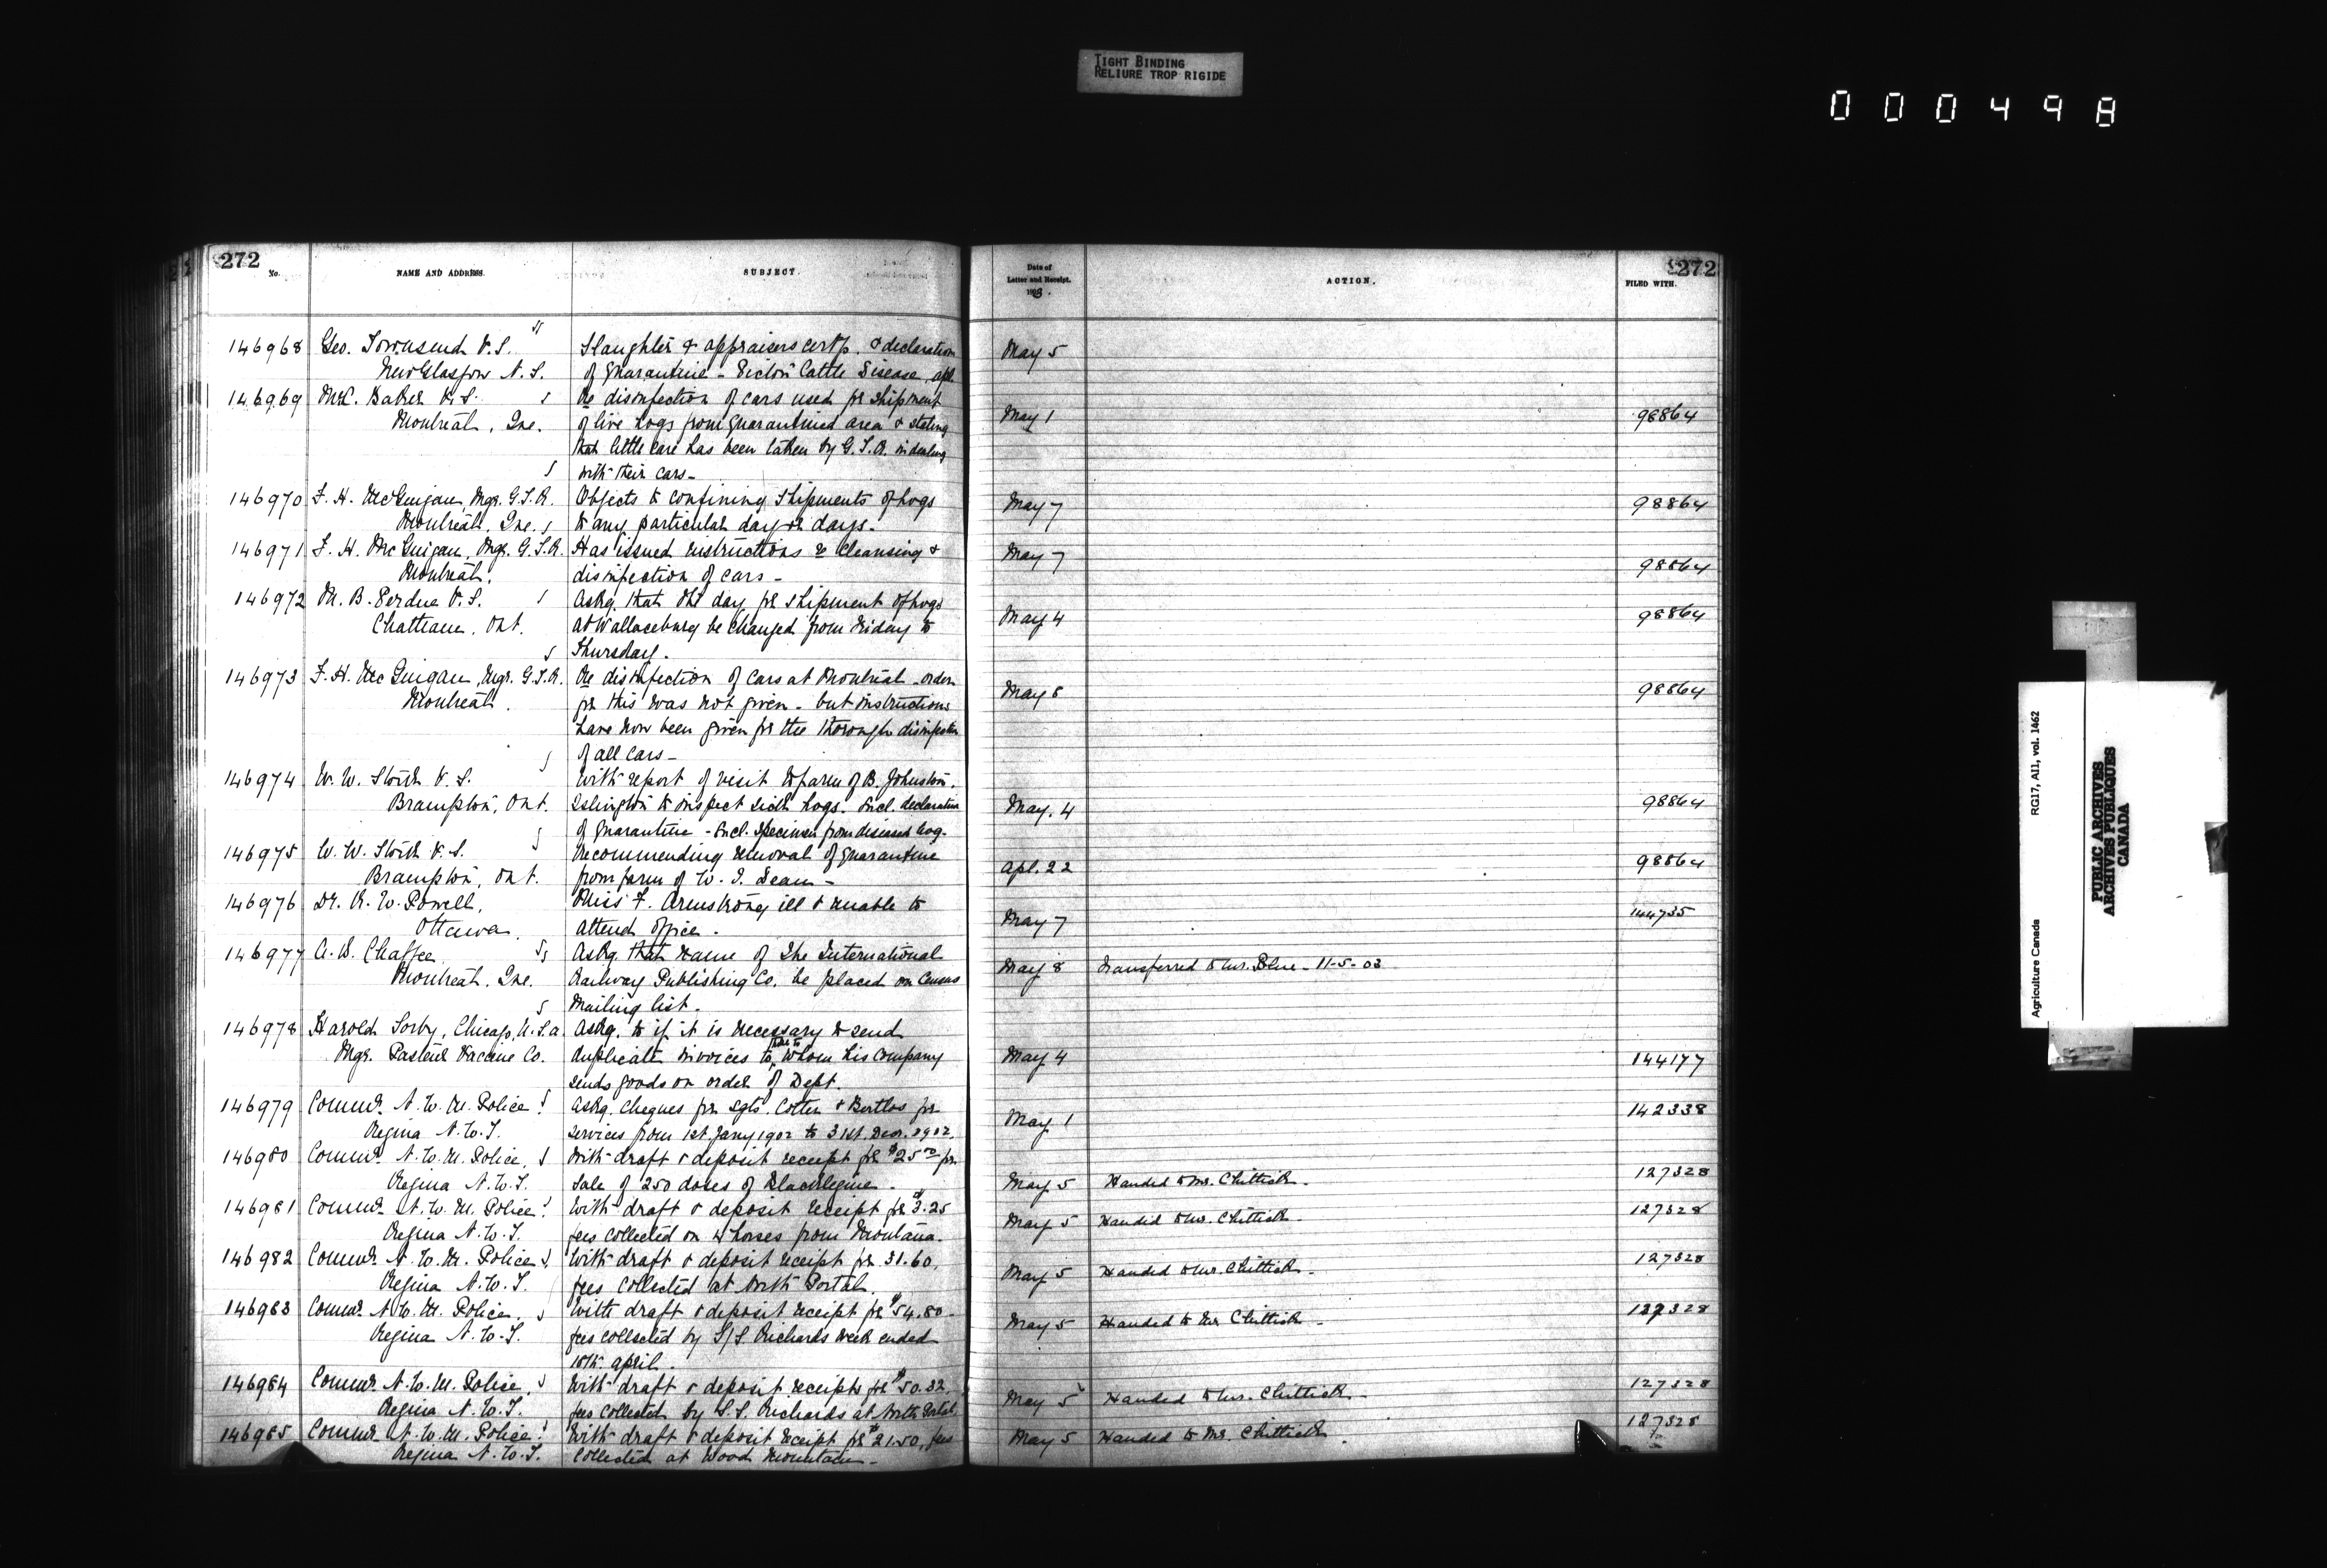 TIGHT BINDING
RELIURE TROP RIGIDE
000498
272
No.
NAME AND ADDRESS.
SUBJECT.
Date of
Letter and Receipt.
1903.
ACTION.
272
FILED WITH.
146968 Geo. Townsend V.S. Slaughter & appraisers certfs. & declaration May 5
New Glasgow N.S. of quarantine - Pictou Cattle Disease, apl.
146969 M.C. Baker V.S. Re disinfection of cars used for shipment May 1 98864
Montreal, Que. of live hogs from quarantined area & stating
that little care has been taken by G.T.R. in dealing
with their cars -
146970 F. H. McGuigan, Mgr. G.T.R. Objects to confining shipments of hogs May 7 98864
Montreal, Que. to any particular day or days.
146971 F. H. McGuigan, Mgr. G.T.R. Has issued instructions re cleansing & May 7 98864
Montreal. disinfection of cars -
146972 M. B. Perdue V.S. Askg. that the day for shipment of hogs May 4 98864
Chatham, Ont. at Wallaceburg be changed from Friday to
Thursday.
146973 F. H. McGuigan, Mgr. G.T.R. Re disinfection of cars at Montreal - order May 8 98864
Montreal. for this was not given - but instructions
have now been given for the thorough disinfection
of all cars -
146974 W. W. Stork V.S. With report of visit to farm of B. Johnston,
Brampton, Ont. Islington to inspect sick hogs. Incl. declaration May. 4 98864
of quarantine - Incl. specimen from diseased hog.
146975 W. W. Stork V.S. Recommending removal of quarantine
Brampton, Ont. from farm of W. J. Deam - Apl. 22 98864
146976 Dr. R. W. Powell, Miss F. Armstrong ill & unable to May 7 144735
Ottawa. attend office.
146977 A. W. Chaffee Askg. that name of The International May 8 Transferred to Mr. Blue - 11-5-03
Montreal, Que. Railway Publishing Co. be placed on Census
Mailing list.
146978 Harold Sorby, Chicago, U.S.A. Askg. to if it is necessary to send
Mgr. Pasteur Vaccine Co. duplicate invoices to whom his Company May 4 144177
sends goods on order of Dept.
146979 Commr. N.W.M. Police Askg. cheques for Sgts. Cotter & for May 1 142338
Regina N.W.T. services from 1st. Jany 1902 to 31st. Decr. 1902.
146980 Commr. N.W.M. Police, With draft & deposit receipt for $25.00 for
Regina N.W.T. sale of 250 doses of Blacklegine. May 5 Handed to Mr. Chittick. 127328
146981 Commr. N.W.M. Police With draft & deposit receipt for $3.25 May 5 Handed to Mr. Chittick. 127328
Regina N.W.T. fees collected on 4 horses from Montana.
146982 Commr. N.W.M. Police With draft & deposit receipt for 31.60, May 5 Handed to Mr. Chittick. 127328
Regina N.W.T. fees collected at North Portal.
146983 Commr. N.W.M. Police With draft & deposit receipt for $54.80 - May 5 Handed to Mr Chittick - 127328
Regina N.W.T. fees collected by S/S. Richards week ended
18th. April.
146984 Commr. N.W.M. Police, With draft & deposit receipts for $50.32, May 5 Handed to Mr. Chittick - 127328
Regina N.W.T. fees collected by S.S. Richards at North Portal
146985 Commr. N.W.M. Police With draft & deposit receipt for $21.50, fees May 5 Handed to Mr. Chittick. 127328
Regina N.W.T. collected at Wood Mountain -
Agriculture Canada RG17, AI1, vol. 1462
PUBLIC ARCHIVES
ARCHIVES PUBLIQUES
CANADA